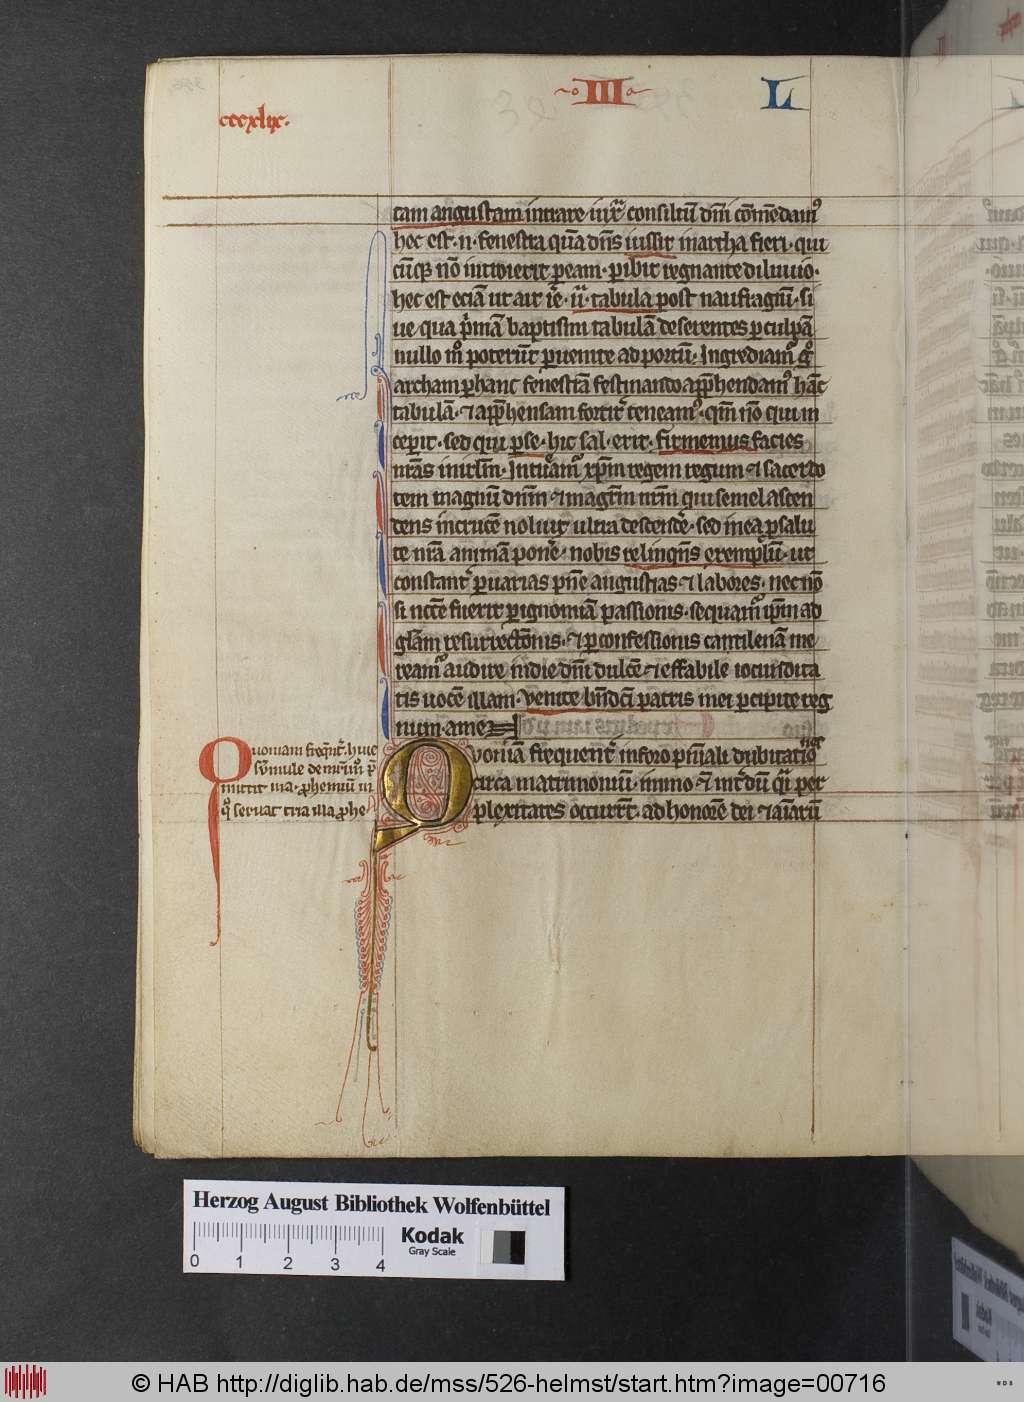 III L
cccxlix.
tam angustam intrare iuxͣ consiliū dñi cōmēdamꝰ
hec est .n. fenestra quā dñs iussit in archa fieri. qui
cūqꝫ nō introierit ꝑ eam. ꝑibit regnante diluuio.
hec est eciā ut ait ie̅. ijͣ. tabula post naufragiū. si
ue qua p̄mā baptismi tabulā deserentes ꝑ culpā
nullo mͦ poterūt ꝑuenire ad portū. Ingrediamͬ gͦ
archam ꝑ hanc fenestrā festinando app̄hendamꝰ hāc
tabulā. ⁊ app̄hensam fortit̉ teneamꝰ. qm̄ nō qui in
ceꝑit. sed qui ꝑse. hic sal. erit. firmemus facies
nr̄as in irlm̄. Intueamͬ xp̄m regem regum ⁊ sacerdo
tem magnū dnm̄ ⁊ magr̄m nr̄m qui semel ascen
dens in crucē noluit ultra descende̅. sed in ea ꝓ salu
te nr̄a animā pone̅. nobis relinqn̄s exemplū. ut
constant̉ ꝑ uarias pn̄e angustias ⁊ labores. nec nō
si nc̄ce fuerit ꝑ ignomiā passionis. sequamͬ ip̄m ad
gl̄am resurrectōnis. ⁊ ꝑ confessionis cantilenā me
reamͬ audire in die dn̄i dulcē ⁊ effabile iocundita
tis uocē illam. venite bn̄dc̄i patris mei ꝑcipite reg
num. amen
Quoniā frequent̉ in foro pn̄iali dubitatio nes
circa matrimoniū. immo ⁊̄ int̉dū q̄i per
plexitates occurrt̄. ad honorē dei ⁊ aīarū
Quoniam freqn̄t̉. huic
sūmule de mr̄imōͦ p̄
mittit mͣ. ꝓhemiū in
qͦ seruat tria illa ꝓhe.
Herzog August Bibliothek Wolfenbüttel
0 1 2 3 4
Kodak
Gray Scale
© HAB http://diglib.hab.de/mss/526-helmst/start.htm?image=00716